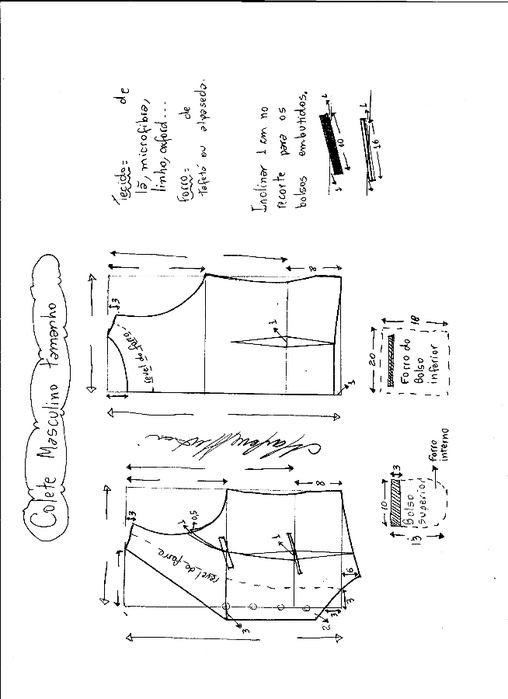 Colete Masculino tamanho
Tecido= de
lã, microfibra,
linho, oxford...
Forro= de
tafetá ou alpaseda.
Inclinar 1 cm no
recorte para os
bolsos embutidos.
1
10
1
1
16
1
3
revel do forro
8
1
1
20
18
Forro do
Bolso
inferior
3
1
0,5
revel do forro
8
1
6
3
3
2
3
10
3
13
Bolso
superior
forro
interno